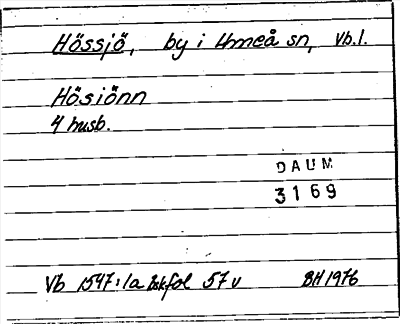 Hössjö, by i Umeå sn, Vb.l.
Hösiönn
4 husb.
DAUM
3169
Vb 1547:1a bskfol 57v BH 1976